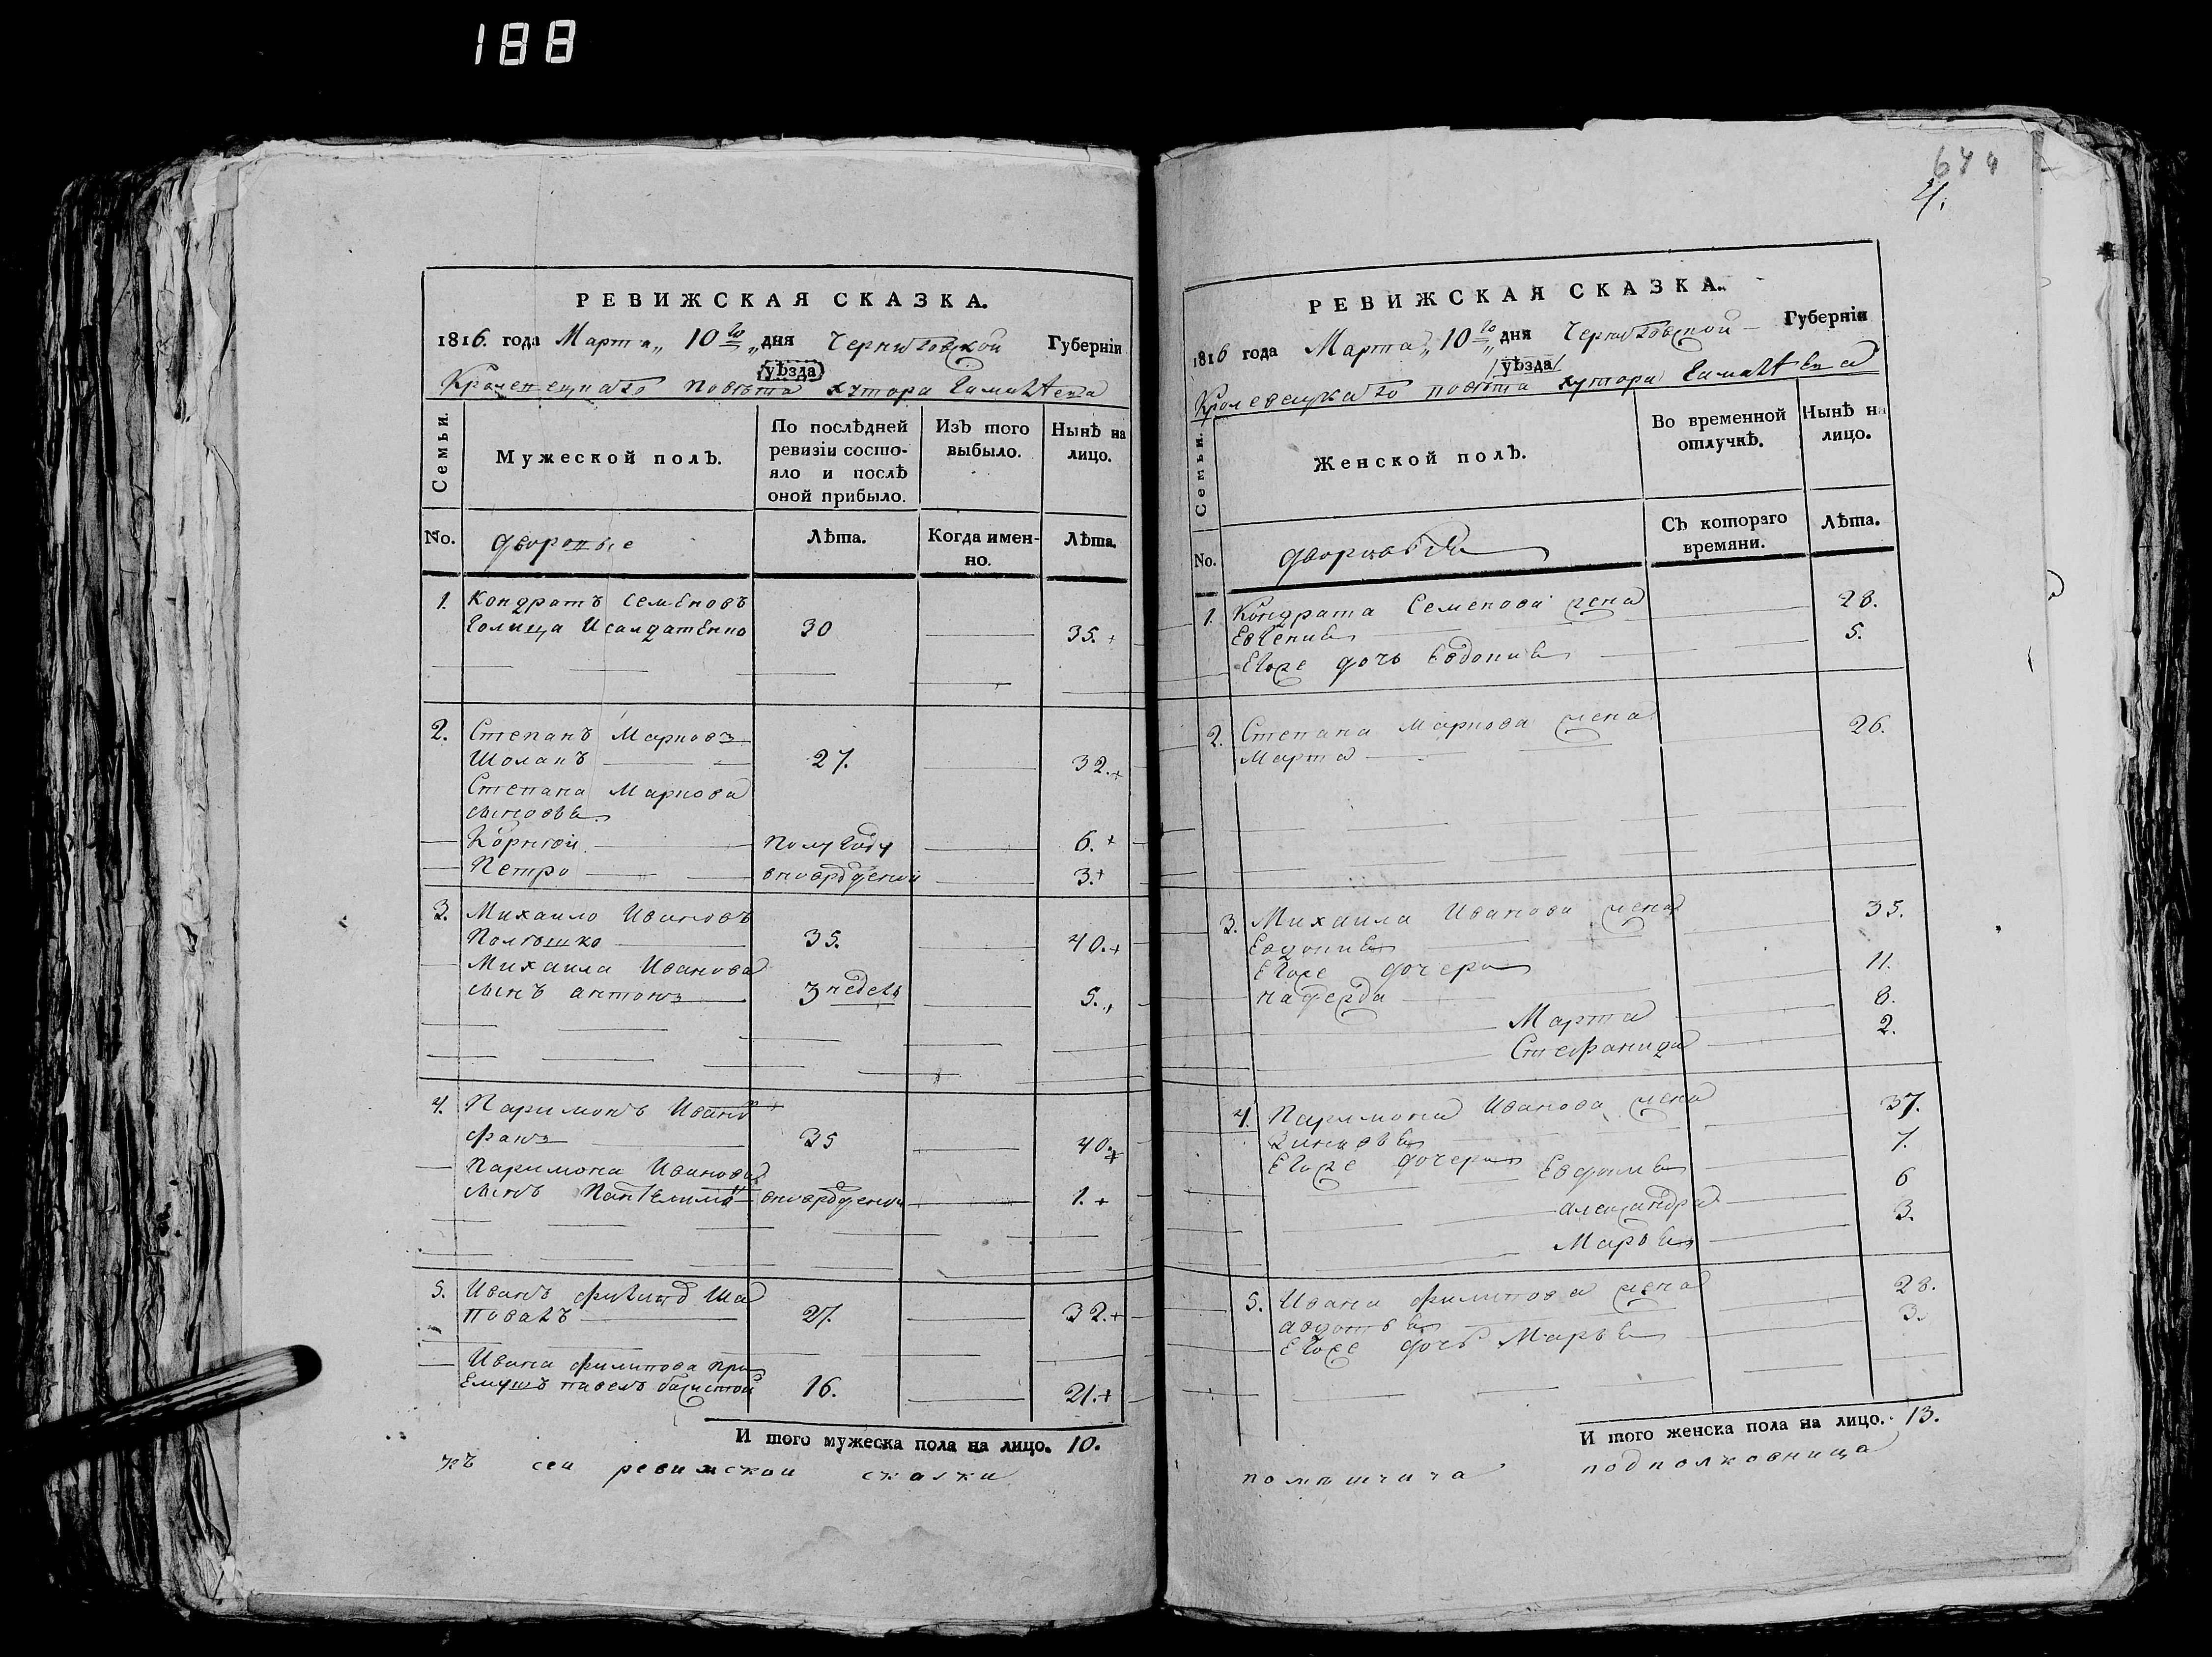 188
РЕВИЖСКАЯ СКАЗКА.
1816. года Марта „ 10го „ дня Черниговской Губернiи
уѣзда
Кролевецкаго повѣта хутора
Семьи.
Мужеской полъ.
По послѣдней ревизiи состо-
яло и послѣ
оной прибыло.
Изъ того выбыло.
Нынѣ на лицо.
No. дворовые Лѣта. Когда имен-
но. Лѣта.
1. Кондратъ Семеновъ
30 35. +
2. Степанъ Марковъ
Шоланъ 27. 32. +
Степана Маркова
сыновья
Корнѣй полугоду 6. +
Петро вноврожденой 3. +
3. Михаило Ивановъ
35. 40. +
Михаила Иванова
сынъ антонъ 3 недель 5. +
4. Паримонъ Иванъ
35 40. +
Паримона Иванова
сынъ вноврожденой 1. +
5. Иванъ Ша
повалъ 27. 32. +
Ивана филипова при
емышъ павелъ 16. 21. +
И того мужеска пола на лицо. 10.
къ сеи ревижскои скаски
644
4.
РЕВИЖСКАЯ СКАЗКА.
1816 года Марта „ 10го „ дня Черниговской Губернiи
уѣзда
Кролевецкаго повѣта хутора
Семьи.
Женской полъ.
Во временной
отлучкѣ.
Нынѣ на
лицо.
No. дворовыя Съ котораго
времяни. Лѣта.
1. Кондрата Семенова жена 28.
Евгения 5.
Егоже дочь Евдокия
2. Степана Маркова жена 26.
Марта
3. Михаила Иванова жена 35.
Евдокия
Егоже дочери 11.
8.
Марта 2.
Стефанида
4. Паримона Иванова жена 37.
Зиновья 7.
Егоже дочери Евфимия 6
александра 3.
Марья
5. Ивана филипова жена 28.
авдотья 3.
Егоже дочь Марья
И того женска пола на лицо. 13.
подполковница